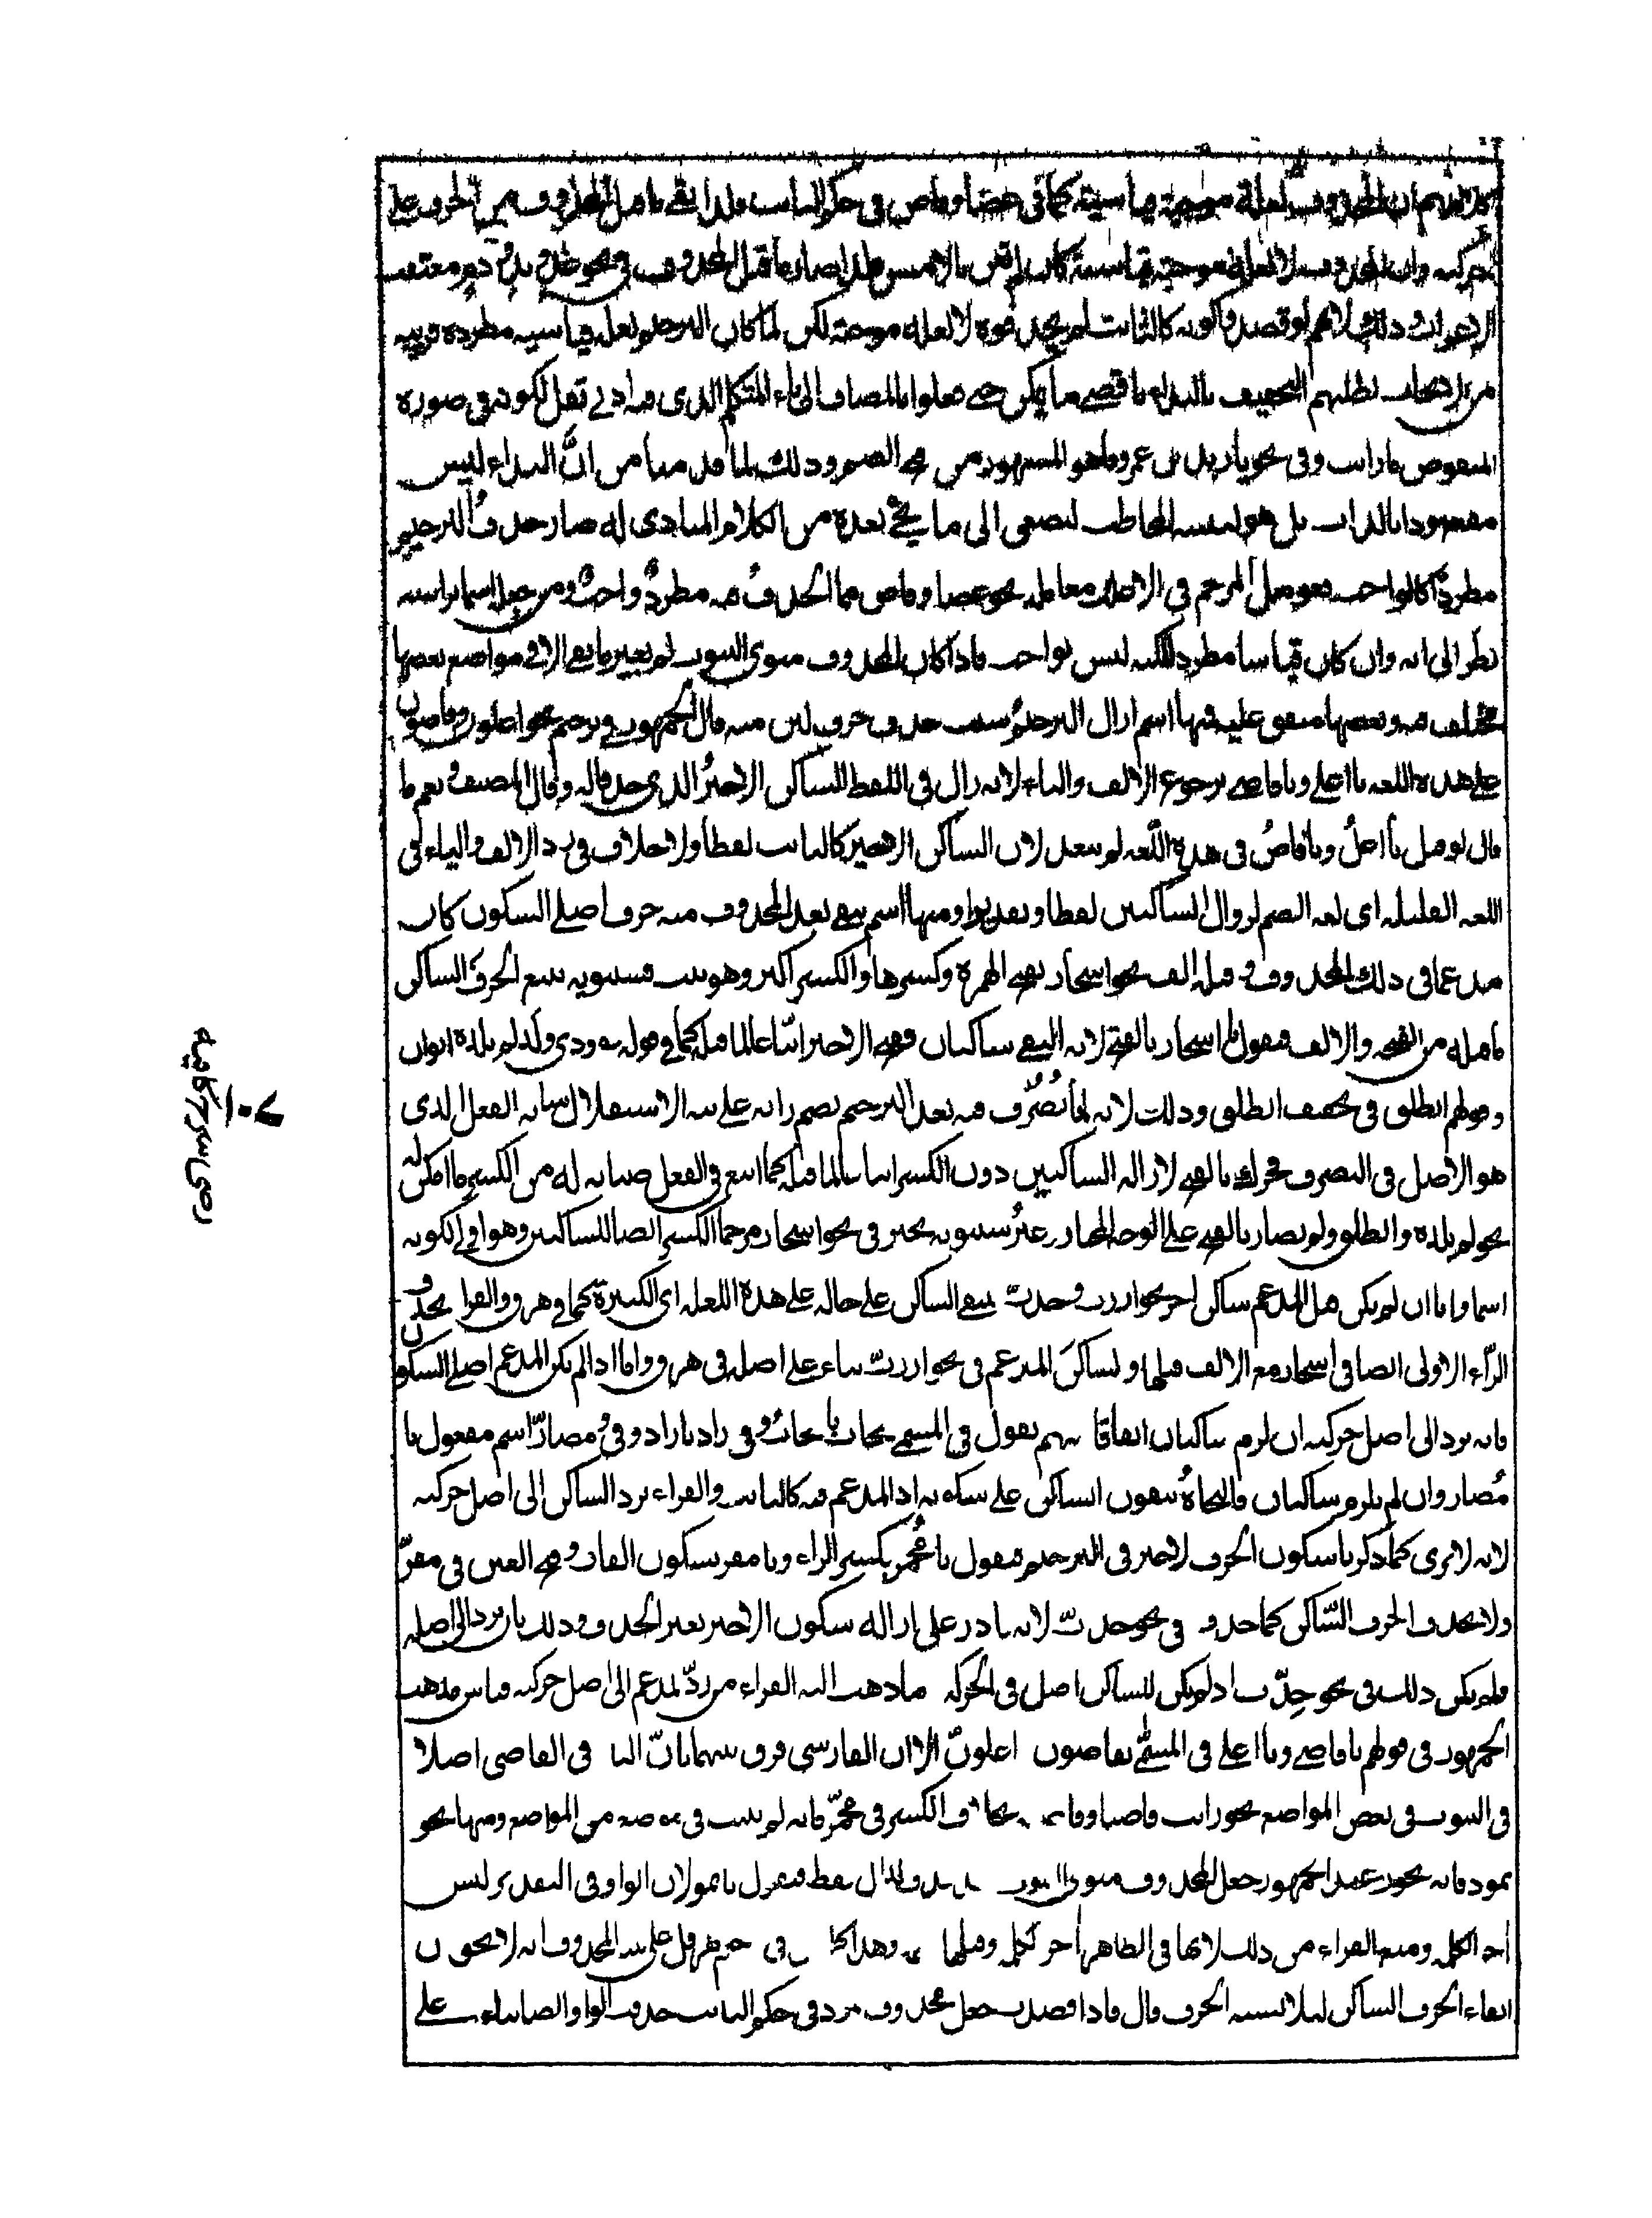 كلامهم ان المحذوف لعلة موجبة قياسية كما في عصا وقاض في حكم الثابت ولذا بقي ما قبل المحذوف من الحروف على
حركته وان المحذوف لا لعلة موجبة قياسية كان لم يكن بالامس فلذا صار ما قبل المحذوف في نحو غد ويد ودم معتقب
الاعراب وذلك لانهم لو قصدوا كونه كالثابت لم يحذفوه لا لعلة موجبة لكن لما كان الترخيم لعلة قياسية مطردة قريبة
من الايجاب لطلبهم التخفيف بالنداء باقصى ما يمكن حتى فعلوا بالمضاف الى ياء المتكلم الذي فيه ادنى ثقل لكونه في صورة
المنقوص ما رايت وفي نحو يا زيد بن عمرو ما هو المشهور من فتح الضم وذلك لما قدمنا من ان النداء ليس
مقصودا بالذات بل هو لتنبيه المخاطب ليصغي الى ما يجئ بعده من الكلام المنادى له صار حذف الترخيم
مطردا كالواجب فعومل المرخم في الاغلب معاملة نحو عصا وقاض مما الحذف فيه مطرد واجب ومن جعل اسما براسه
نظر الى انه وان كان قياسا مطردا لكنه ليس بواجب فاذا كان المحذوف منوي الثبوت لم يغير ما بقي الا في مواضع بعضها
مختلف فيه وبعضها متفق عليه فمنها اسم ازال الترخيم سبب حذف حرف لين منه قال الجمهور في ترخيم نحو اعلون وقاضون
على هذه اللغة يا اعلى ويا قاضي برجوع الالف والياء لانه زال في اللفظ الساكن الاخير الذي حذفا له وقال المصنف ونعم ما
قال لو قيل يا اعل ويا قاض في هذه اللغة لم يبعد لان الساكن الاخير كالثابت لفظا ولا خلاف في رد الالف والياء في
اللغة القليلة اى لغة الضم لزوال الساكنين لفظا وتقديرا ومنها اسم يبقى بعد المحذوف منه حرف اصلي السكون كان
مدغما في ذلك المحذوف وقبله الف نحو اسحار بفتح الهمزة وكسرها والكسر اكثر وهو نبت فسيبويه يتبع الحرف الساكن
ما قبله من الفتحة والالف فيقول يا اسحار بالفتح لانه التقى ساكنان وفتح الاخير اتباعا لما قبله كما في قوله ع وذي ولد لم يلده ابوان
وقولهم انطلق في تخفيف انطلق وذلك لانه لما تصرف فيه بعد الترخيم بضم رائه على نية الاستقلال شابه الفعل الذي
هو الاصل في التصرف فحرك بالفتح لازالة الساكنين دون الكسر اتباعا لما قبله كما اتبع في الفعل صيانة له من الكسر ما امكن له
نحو لم يلده وانطلق ولم يضار بالفتح على الوجه المختار وغير سيبويه يجيز في نحو اسحار مرخما الكسر ايضا للساكنين وهو اولى لكونه
اسما واما ان لم يكن قبل المدغم ساكن اخر نحو ارزب وخدب يبقى الساكن على حاله على هذه اللغة اى الكثيرة كما في هرق والفراء يحذف
الراء الاولى ايضا في اسحار مع الالف قبلها والساكن المدغم في نحو ارزب بناء على اصله في هرق واما اذا لم يكن المدغم اصلي السكون
فانه يرد الى اصل حركته ان لزم ساكنان اتفاقا منهم تقول في المسمى بتحاب يا تحاب وفي راد يا راد وفي مضار اسم مفعول يا
مضار وان لم يلزم ساكنان فالنحاة يبقون الساكن على سكونه اذ المدغم فيه كالثابت والفراء يرد الساكن الى اصل حركته
لانه لا يرى كما ذكرنا سكون الحرف الاخير في الترخيم فيقول يا محمر بكسر الراء ويا مفر بسكون الفاء وفتح العين في مفر
ولا يحذف الحرف الساكن كما حذف في نحو خدب لانه قادر على ازالة سكون الاخير بغير الحذف وذلك بان يرد الى اصله
ولم يكن ذلك في نحو خدب اذ لم يكن للساكن اصل في الحركة فما ذهب اليه الفراء من رد المدغم الى اصل حركته قياس مذهب
الجمهور في قولهم يا قاضي ويا اعلى في المسمى بقاضون اعلون الا ان الفارسي فرق بينهما بان الياء في القاضي اصلا
في الثبوت في بعض المواضع نحو رايت قاضيا وقاضية بخلاف الكسر في محمر فانه لم يثبت في موضع من المواضع ومنها نحو
ثمود فانه يجوز عند الجمهور جعل المحذوف منوي الثبوت بحذف الدال فقط فتقول يا ثمو لان الواو في التقدير ليس
اخر الكلمة ومنع الفراء من ذلك لانها في الظاهر اخر كلمة وقبلها ضمة وهذا كما في هرقل على نية المحذوف انه لا يجوز
ابقاء الحرف الساكن لئلا يشبه الحرف قال فاذا قصدت جعل محذوف ثمود في حكم الثابت حذفت الواو ايضا بناء على
رضي شرح كافية
٧٠